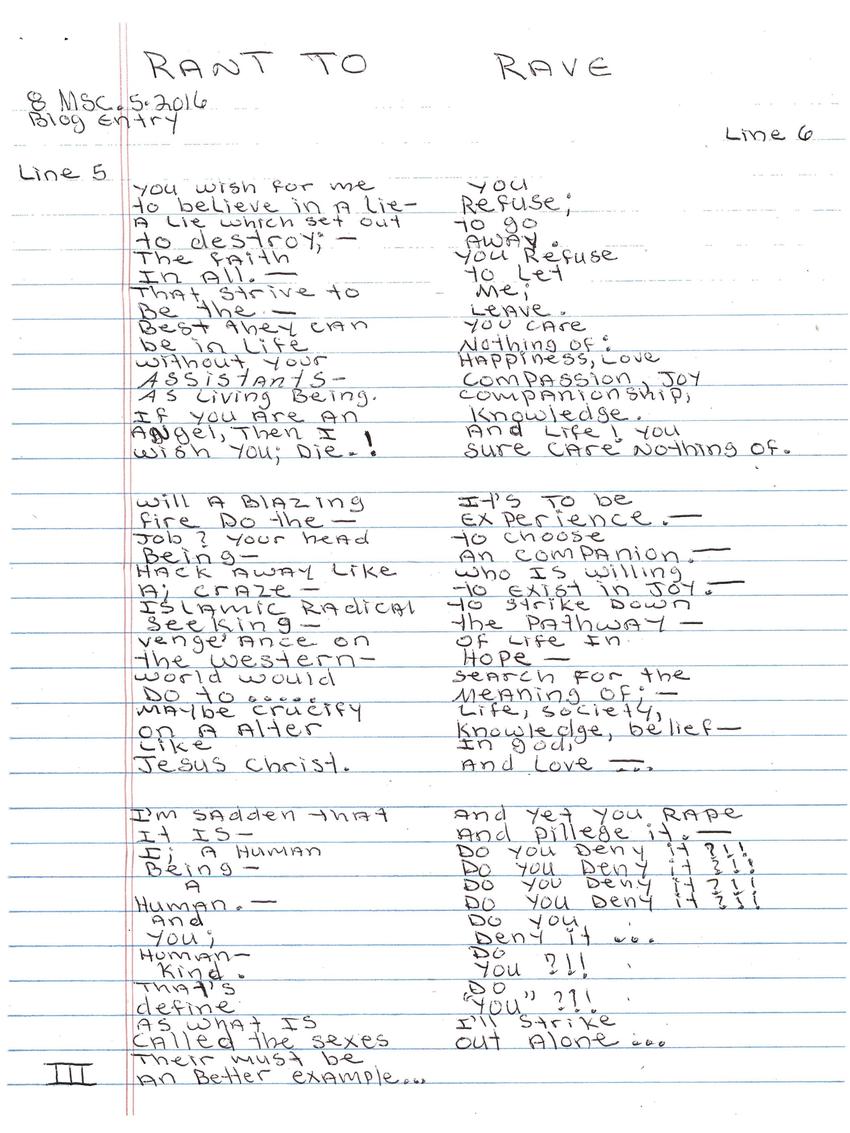 RANT TO RAVE
8 MSC. 5. 2016
Blog Entry
Line 6
Line 5
You wish for me
to believe in A Lie-
A Lie which set out
to destroy; -
The FAith
In All. -
That strive to
Be the. -
Best they CAN
be in Life
without your
ASSISTANTS-
AS Living Being.
If you ARE AN
ANgel, Then I
wish You; Die..!
will A BLAZING
fire Do the -
Job? Your head
Being -
HACK AWAY Like
A; CRAZE -
ISLAMIC RADICAL
seeking -
venge'Ance on
the western-
world would
DO to ......
MAYbe crucify
on A Alter
Like
Jesus christ.
I'm sadden that
It IS -
I; A HUMAN
Being -
A
Human. -
And
You;
Human-
Kind.
That's
define
AS what IS
CAlled the sexes
Their must be
An Better example...
III
you
Refuse;
to go
AWAY.
You Refuse
to Let
Me;
LeAve.
You CARe
Nothing of:
HAPPINESS, Love
COMPASSION, JOY
companionship,
Knowledge.
And Life! You
sure CARe Nothing of.
It's To be
EXPerience. -
to choose
An companion. -
who IS willing
to exist in JOY. -
to strike Down
the PAthWAY -
of Life In
Hope -
seArch for the
MeAning of; -
Life, society,
Knowledge, belief -
In god,
And Love -...
And yet you RAPe
And pillege it. -
DO you Deny it ?!!
DO you Deny it ?!!
DO you Deny it ?!!
DO you Deny it ?!!
DO you
Deny it ...
DO
You ?!!
DO
"You" ?!!
I'll strike
out Alone ...